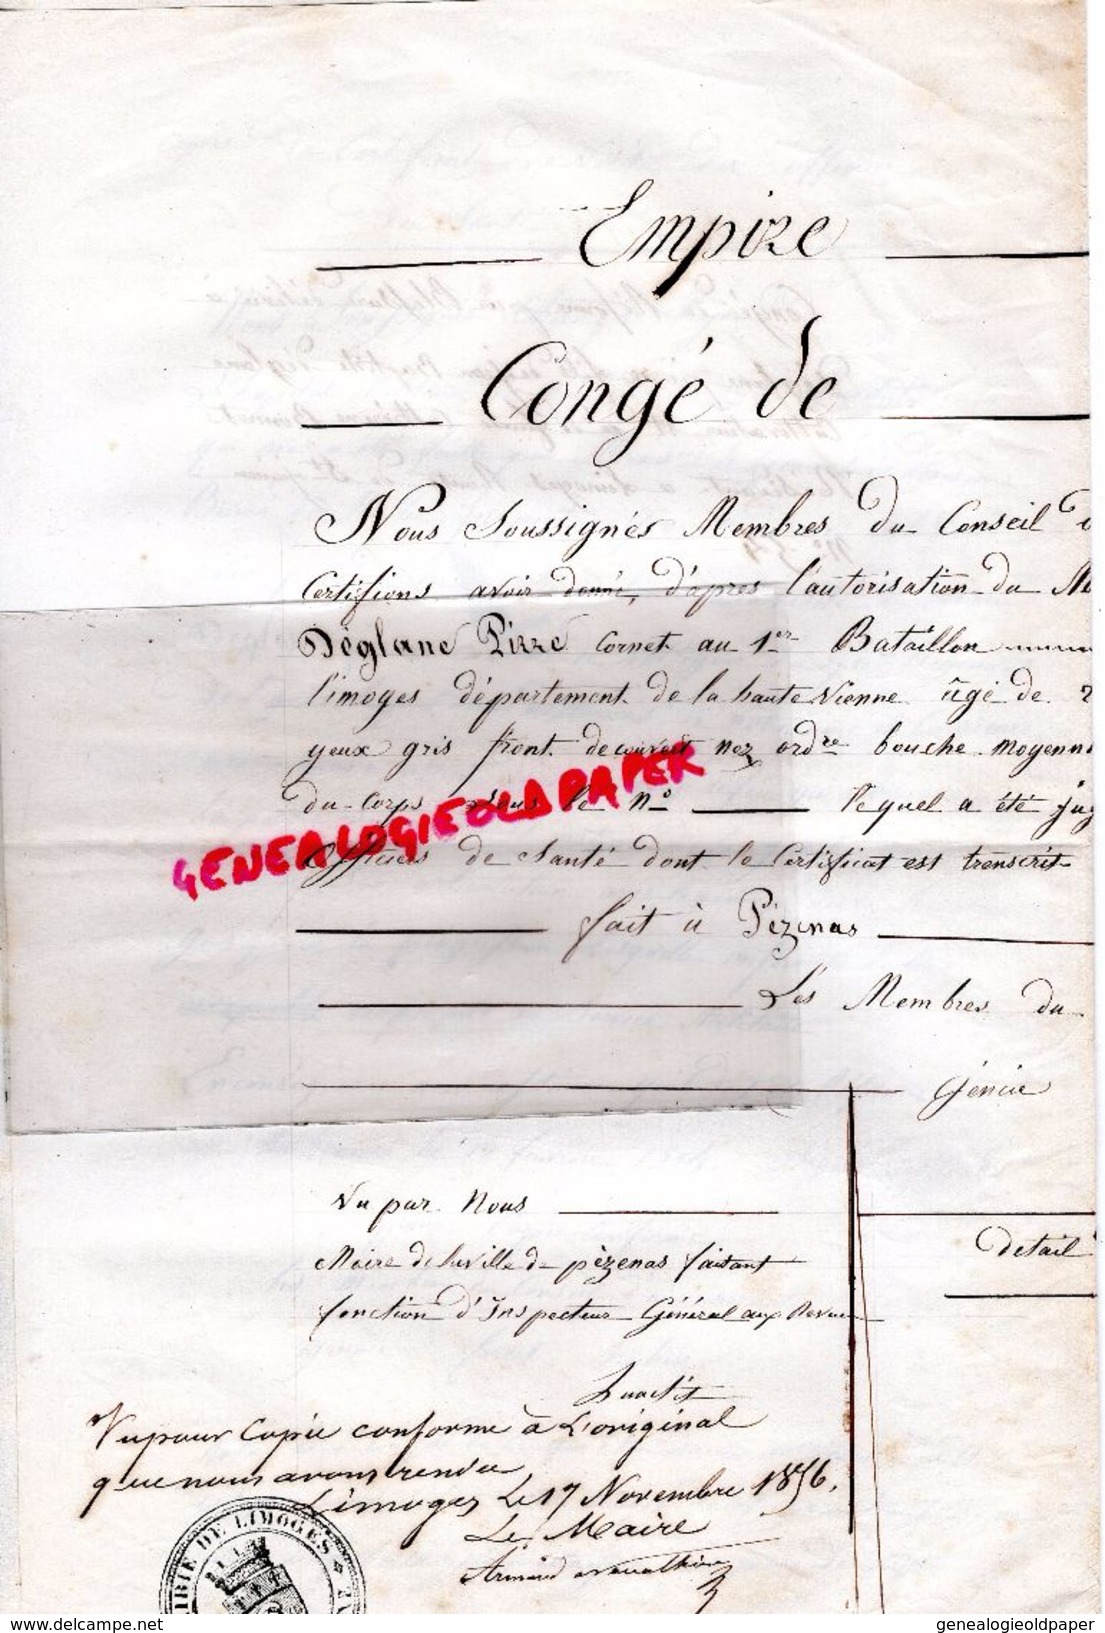 Empire
Congé de
Nous Soussignés Membres du Conseil
Certifions avoir donné, d'après l'autorisation du
Déglane Pirre Cornet au 1er Bataillon
limoges département de la haute Vienne âgé de
yeux gris front decouvert nez ordre bouche moyenne
du Corps sous le No lequel a été jug
Officiers de Santé dont le Certificat est transcrit
fait à Pézenas
Les Membres du
Génie
Vu par Nous
Maire de la ville de pèzenas faisant
fonction d'Inspecteur Général aux Revues
detail
Vu pour Copie conforme à L'original
que nous avons rendu
Limoges Le 17 Novembre 1856.
Le Maire
Armand
MAIRIE DE LIMOGES
GENEALOGIEOLDPAPER
www.delcampe.net
genealogieoldpaper